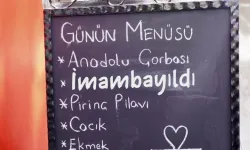 Günün Menüsü
* Anadolu Çorbası
* İmambayıldı
* Pirinç Pilavı
* Cacık
* Ekmek